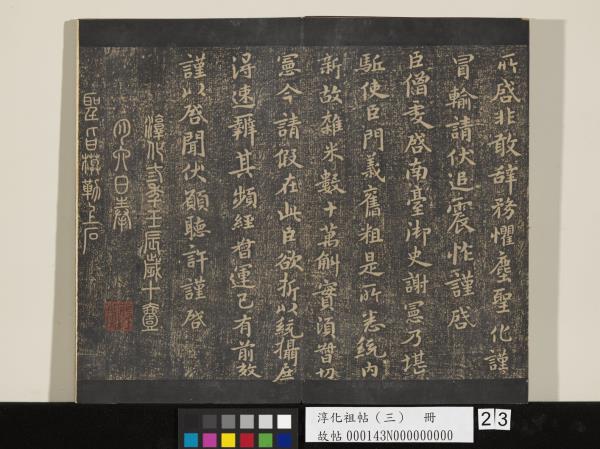 所啓非敢辭務懼塵聖化謹
冒輸請伏追震怍謹啓
臣僧虔啓南臺御史謝憲乃堪
驅使臣門義舊粗是所悉統內
新故雜米數十萬斛實須督切
憲今請假在此臣欲折以統攝庶
得速辦其頻經督運已有前效
謹以啓聞伏願聽許謹啓
淳化三年壬辰歲十一
月六日奉
聖旨模勒上石
淳化祖帖(三) 冊
故帖000143N000000000
23